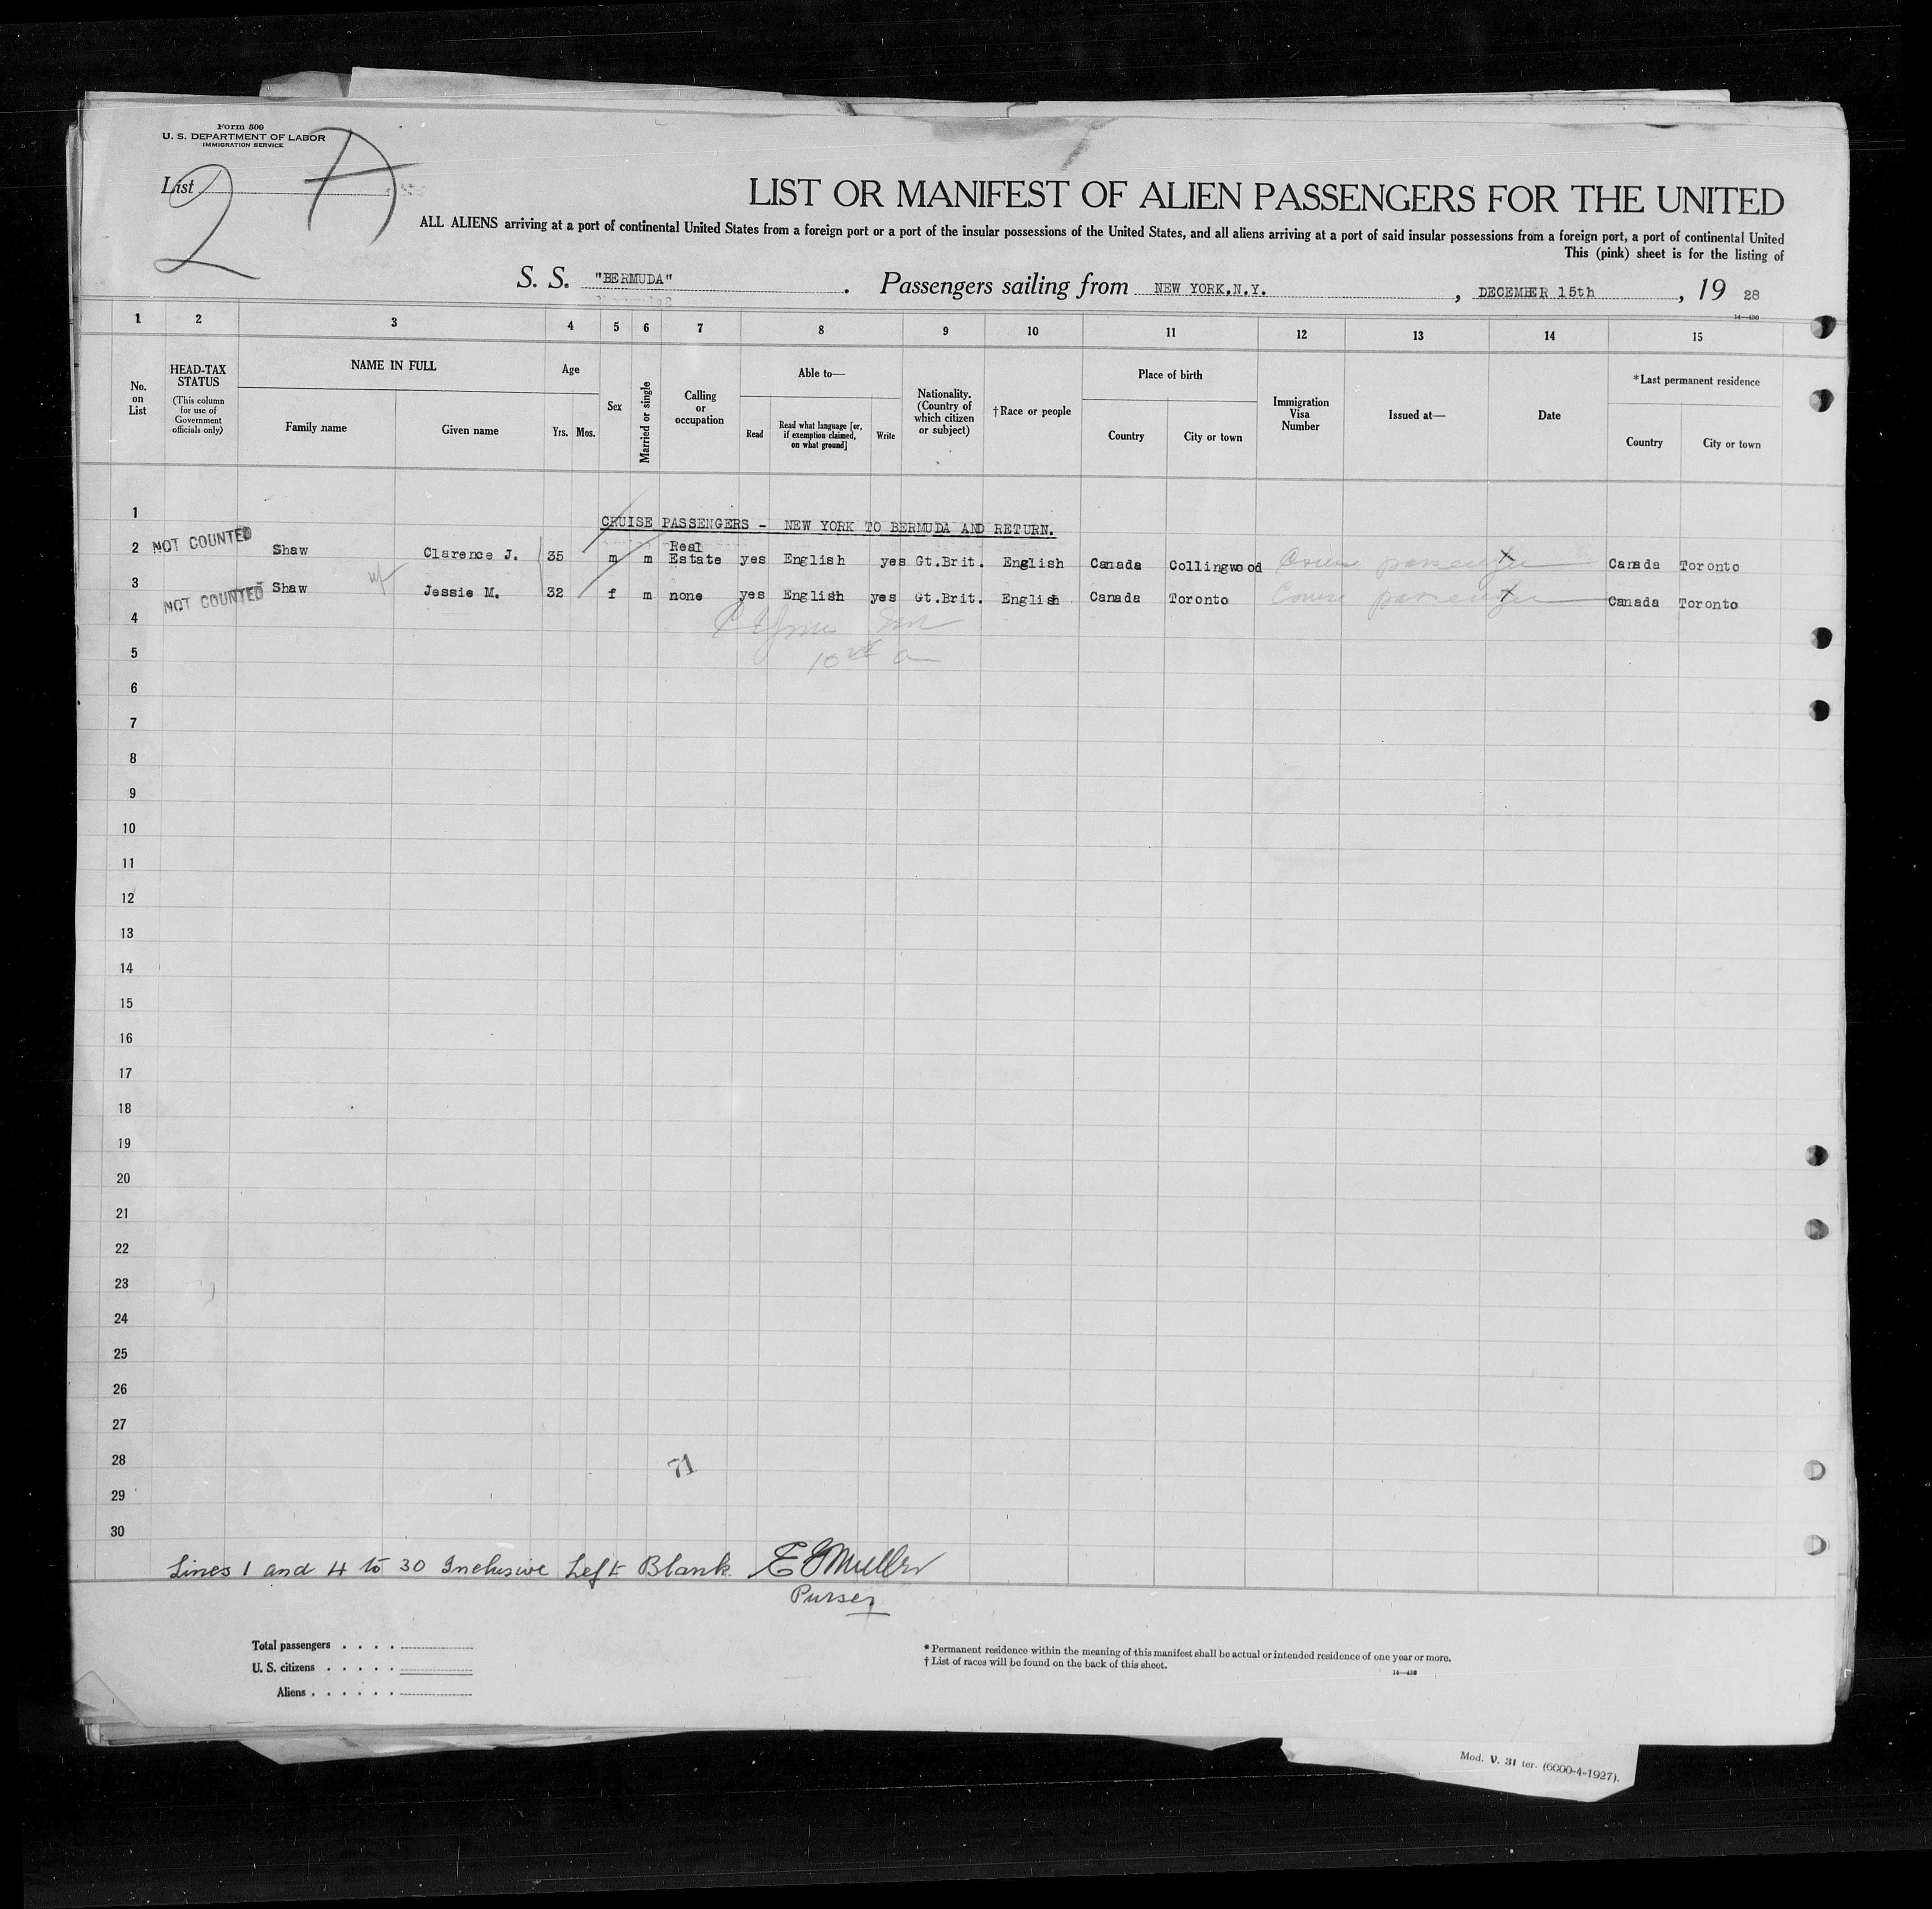 Form 500
U. S. DEPARTMENT OF LABOR
IMMIGRATION SERVICE
List 2 A
LIST OR MANIFEST OF ALIEN PASSENGERS FOR THE UNITED
ALL ALIENS arriving at a port of continental United States from a foreign port or a port of the insular possessions of the United States, and all aliens arriving at a port of said insular possessions from a foreign port, a port of continental United
This (pink) sheet is for the listing of
S. S. "BERMUDA". Passengers sailing from NEW YORK.N.Y., DECEMBER 15th, 19 28
14—430
1 2 3 4 5 6 7 8 9 10 11 12 13 14 15
No. on List
HEAD-TAX STATUS (This column for use of Government officials only)
NAME IN FULL
Family name Given name
Age
Yrs. Mos.
Sex
Married or single
Calling or occupation
Able to—
Read Read what language [or, if exemption claimed, on what ground] Write
Nationality. (Country of which citizen or subject)
†Race or people
Place of birth
Country City or town
Immigration Visa Number
Issued at—
Date
*Last permanent residence
Country City or town
1
CRUISE PASSENGERS - NEW YORK TO BERMUDA AND RETURN.
2 NOT COUNTED Shaw Clarence J. 35 m m Real Estate yes English yes Gt.Brit. English Canada Collingwood passenger Canada Toronto
3 NOT COUNTED Shaw Jessie M. 32 f m none yes English yes Gt.Brit. English Canada Toronto passenger Canada Toronto
4
5
6
7
8
9
10
11
12
13
14
15
16
17
18
19
20
21
22
23
24
25
26
27
28 71
29
30
Lines 1 and 4 to 30 Inclusive Left Blank. E G Muller
Purser
Total passengers . . . .
U. S. citizens . . . . .
Aliens . . . . . .
* Permanent residence within the meaning of this manifest shall be actual or intended residence of one year or more.
† List of races will be found on the back of this sheet.
14—430
Mod. V. 31 ter. (6000-4-1927).